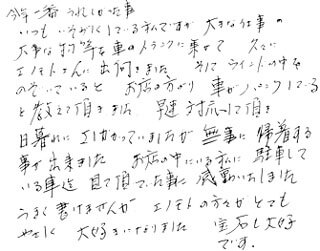 今年一番うれしかった事
いつもいそがしくしている私ですが大きな仕事の
大事な打ち等を車のトランクに乗せて 久々に
エノモトさんに出向きました そこでウインドの中を
のぞいていると お店の方がり車がパンクしている
と教えて頂きました 早速対応して頂き
日暮れに さしかかっていましたが 無事に帰着する
事が出来ました お店の中にいる私に 駐車して
いる車迄 目て頂てた事に 感動いたしました
うまく書けませんが エノモトの方々がとても
やさしく 大好きになりました 宝石も大好
です。